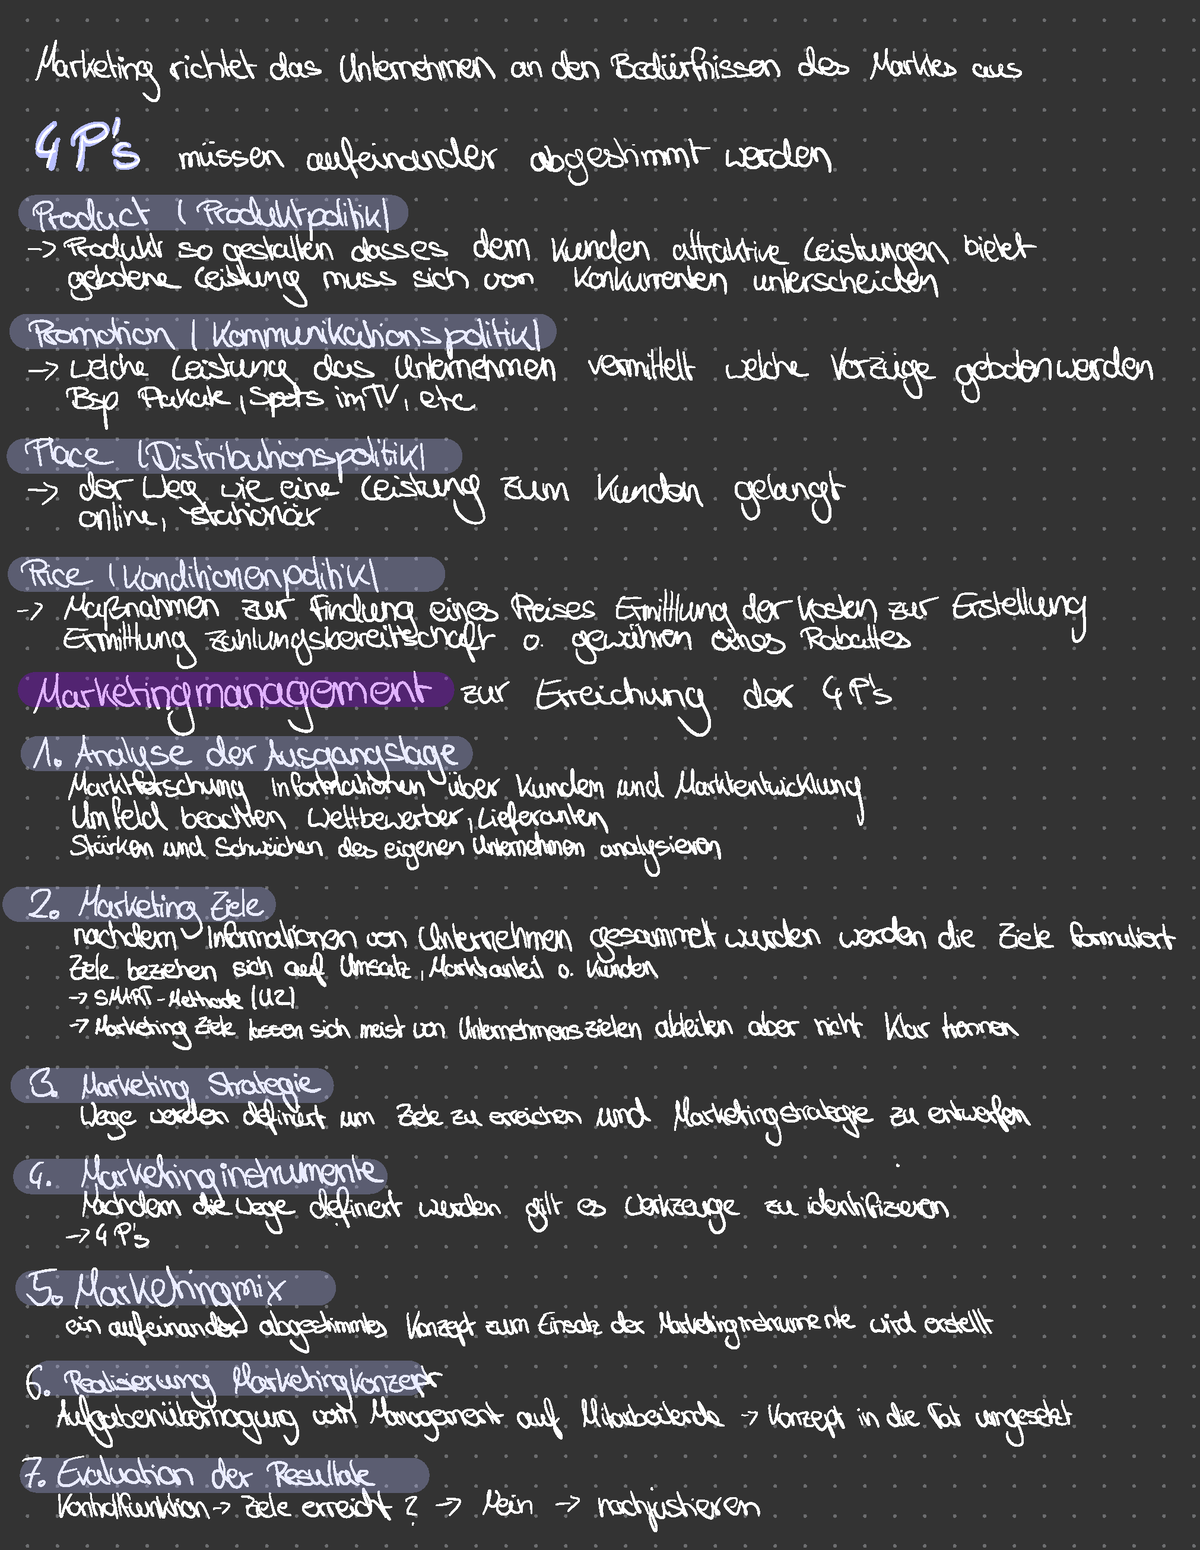 Marketing richtet das Unternehmen an den Bedürfnissen des Marktes aus
4 P's müssen aufeinander abgestimmt werden
Product (Produktpolitik)
→ Produkt so gestalten dass es dem Kunden attraktive Leistungen bietet
gebotene Leistung muss sich von Konkurrenten unterscheiden
Promotion (Kommunikationspolitik)
→ welche Leistung das Unternehmen vermittelt welche Vorzüge geboten werden
Bsp Plakate, Spots im TV, etc.
Place (Distributionspolitik)
→ der Weg wie eine Leistung zum Kunden gelangt
online, stationär
Price (Konditionenpolitik)
→ Maßnahmen zur Findung eines Preises Ermittlung der Kosten zur Erstellung
Ermittlung Zahlungsbereitschaft o. gewähren eines Rabattes
Marketingmanagement zur Erreichung der 4 P's
1. Analyse der Ausgangslage
Marktforschung Informationen über Kunden und Marktentwicklung
Umfeld beachten Wettbewerber, Lieferanten
Stärken und Schwächen des eigenen Unternehmen analysieren
2. Marketing Ziele
nachdem Informationen von Unternehmen gesammelt wurden werden die Ziele formuliert
Ziele beziehen sich auf Umsatz, Marktanteil o. Kunden
→ SMART-Methode (U2)
→ Marketing Ziele lassen sich meist von Unternehmenszielen ableiten aber nicht klar trennen
3. Marketing Strategie
Wege werden definiert um Ziele zu erreichen und Marketingstrategie zu entwerfen
4. Marketinginstrumente
Nachdem die Wege definiert wurden gilt es Werkzeuge zu identifizieren
→ 4 P's
5. Marketingmix
ein aufeinander abgestimmtes Konzept zum Einsatz der Marketinginstrumente wird erstellt
6. Realisierung Marketingkonzept
Aufgabenübertragung vom Management auf Mitarbeitende → Konzept in die Tat umgesetzt
7. Evaluation der Resultate
Kontrollfunktion → Ziele erreicht? → Nein → nachjustieren